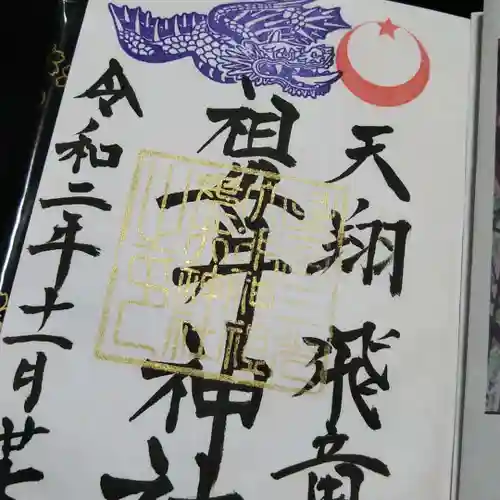 天翔飛竜
祖母井神社
令和二年十一月